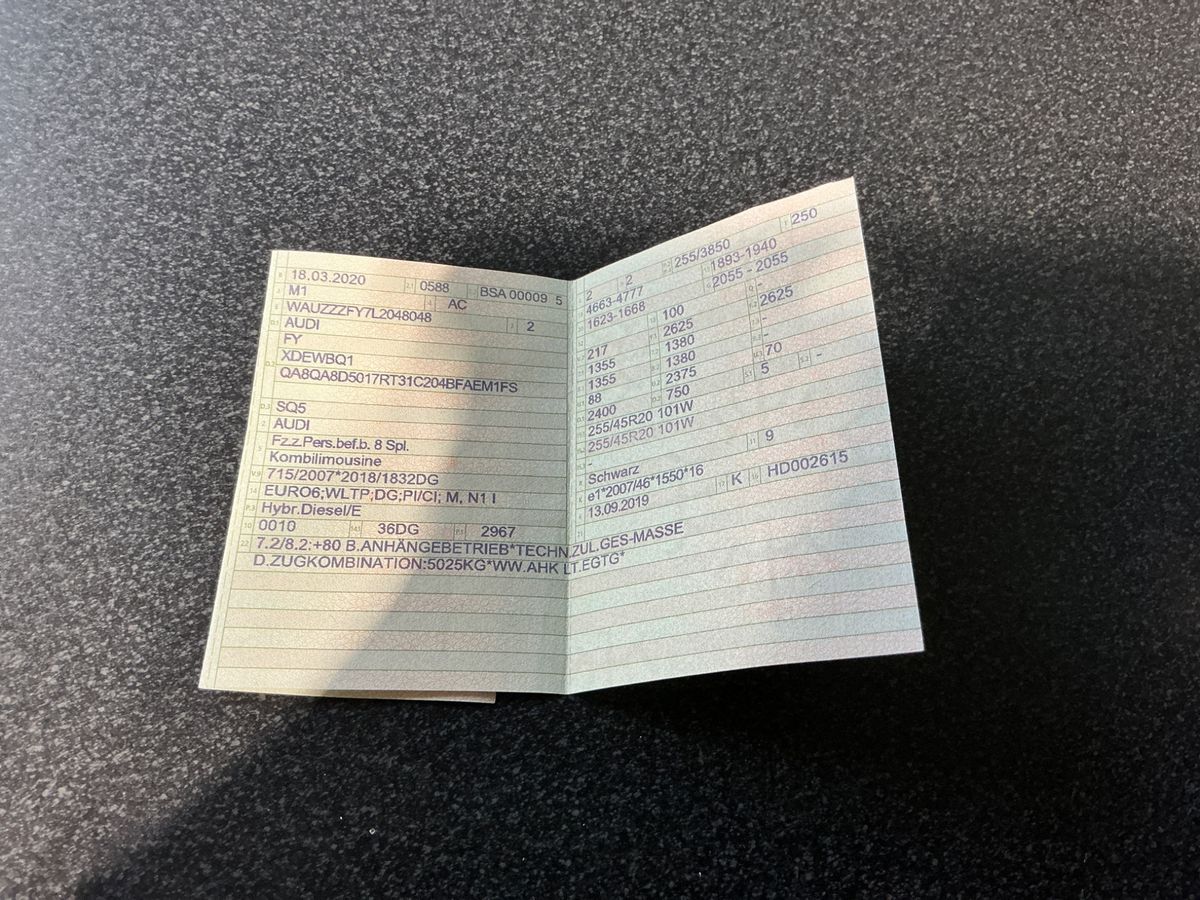 18.03.2020 0588 BSA 00009 5
M1 AC
WAUZZZFY7L2048048
AUDI 2
FY
XDEWBQ1
QA8QA8D5017RT31C204BFAEM1FS
SQ5
AUDI
Fz.z.Pers.bef.b. 8 Spl.
Kombilimousine
715/2007*2018/1832DG
EURO6;WLTP;DG;PI/CI; M, N1 I
Hybr.Diesel/E
0010 36DG 2967
7.2/8.2:+80 B.ANHÄNGEBETRIEB*TECHN.ZUL.GES-MASSE
D.ZUGKOMBINATION:5025KG*WW.AHK LT.EGTG*
2 2 255/3850 250
4663-4777 1893-1940
1623-1668 2055 - 2055
100 -
217 2625 2625
1355 1380 -
1355 1380 -
88 2375 70
2400 750 5 -
255/45R20 101W
255/45R20 101W
-
Schwarz 9
e1*2007/46*1550*16
13.09.2019 K HD002615